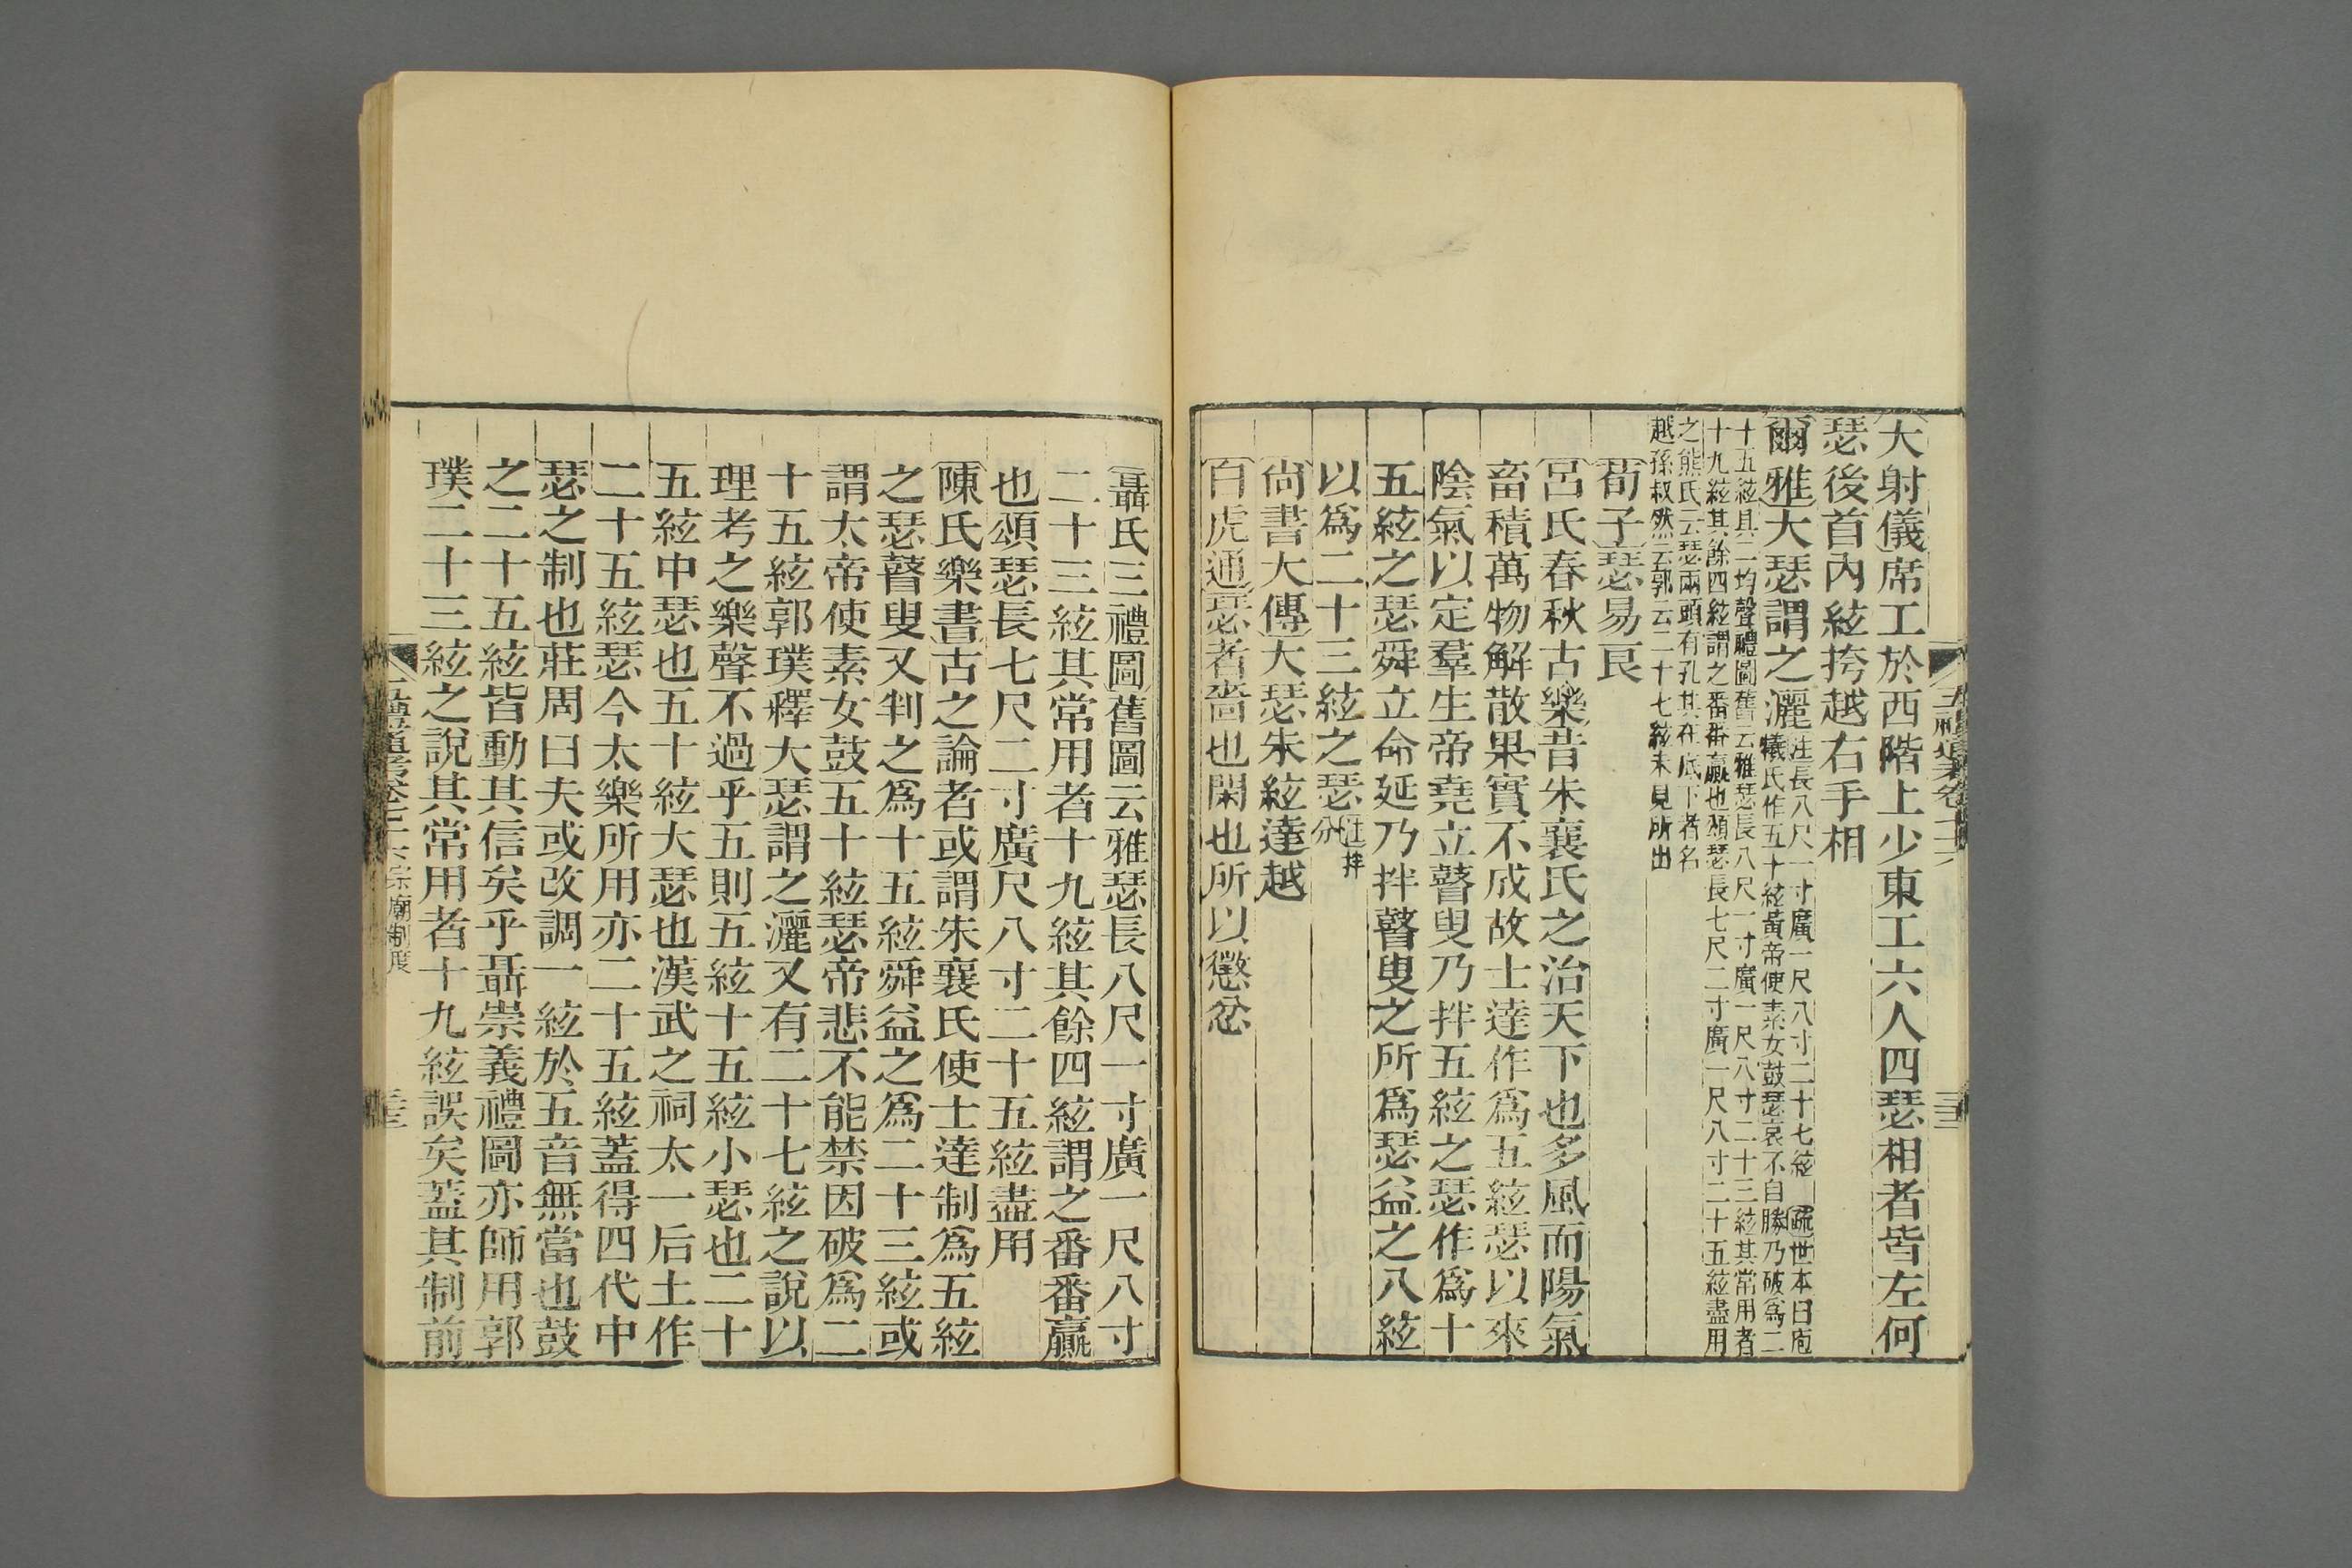 大射儀席工於西階上少東工六人四瑟相者皆左何
瑟後首內絃挎越右手相
爾雅大瑟謂之灑
注長八尺一寸廣一尺八寸二十七絃 疏世本曰庖
犧氏作五十絃黃帝使素女鼓瑟哀不自勝乃破為二
十五絃具二均聲禮圖舊云雅瑟長八尺一寸廣一尺八寸二十三絃其常用者
十九絃其餘四絃謂之番番贏也頌瑟長七尺二寸廣一尺八寸二十五絃盡用
之熊氏云瑟兩頭有孔其在底下者名
越孫叔然云郭云二十七絃未見所出
荀子瑟易良
呂氏春秋古樂昔朱襄氏之治天下也多風而陽氣
畜積萬物解散果實不成故士達作爲五絃瑟以來
陰氣以定羣生帝堯立瞽叟乃拌五絃之瑟作爲十
五絃之瑟舜立命延乃拌瞽叟之所爲瑟益之八絃
以爲二十三絃之瑟
注拌
分
尙書大傳大瑟朱絃達越
白虎通瑟者嗇也閑也所以懲忿
聶氏三禮圖舊圖云雅瑟長八尺一寸廣一尺八寸
二十三絃其常用者十九絃其餘四絃謂之番番贏
也頌瑟長七尺二寸廣尺八寸二十五絃盡用
陳氏樂書古之論者或謂朱襄氏使士達制爲五絃
之瑟瞽叟又判之爲十五絃舜益之爲二十三絃或
謂太帝使素女鼓五十絃瑟帝悲不能禁因破爲二
十五絃郭璞釋大瑟謂之灑又有二十七絃之說以
理考之樂聲不過乎五則五絃十五絃小瑟也二十
五絃中瑟也五十絃大瑟也漢武之祠太一后土作
二十五絃瑟今太樂所用亦二十五絃蓋得四代中
瑟之制也莊周曰夫或改調一絃於五音無當也鼓
之二十五絃皆動其信矣乎聶崇義禮圖亦師用郭
璞二十三絃之說其常用者十九絃誤矣蓋其制前